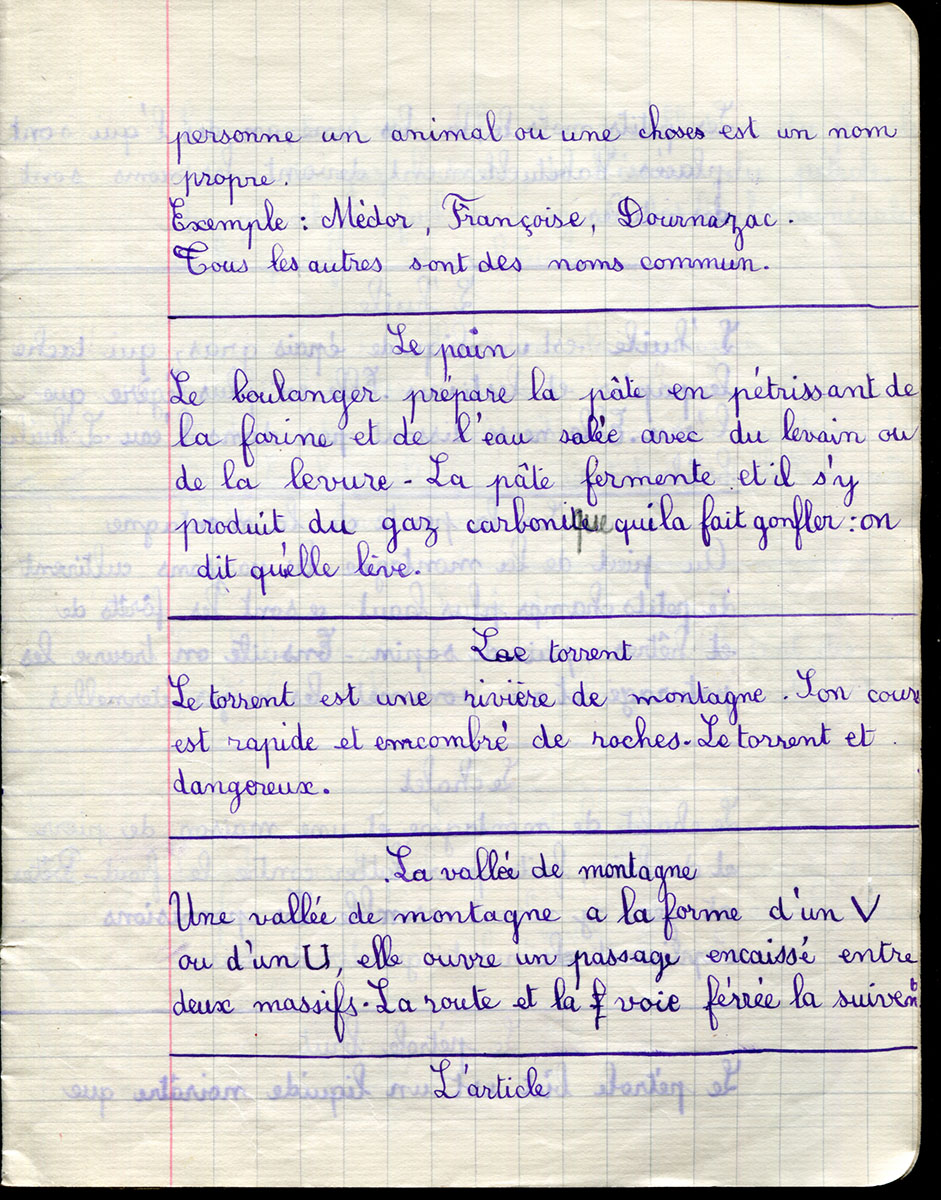 personne un animal ou une choses est un nom
propre.
Exemple : Médor, Françoise, Dournazac.
Tous les autres sont des noms commun.
Le pain
Le boulanger prépare la pâte en pétrissant de
la farine et de l'eau salée avec du levain ou
de la levure - La pâte fermente et il s'y
produit du gaz carbonique qui la fait gonfler : on
dit qu'elle lève.
Le torrent
Le torrent est une rivière de montagne. Son cours
est rapide et emcombré de roches. Le torrent et
dangereux.
La vallée de montagne
Une vallée de montagne a la forme d'un V
ou d'un U, elle ouvre un passage encaissé entre
deux massifs. La route et la voie férrée la suivent
L'article